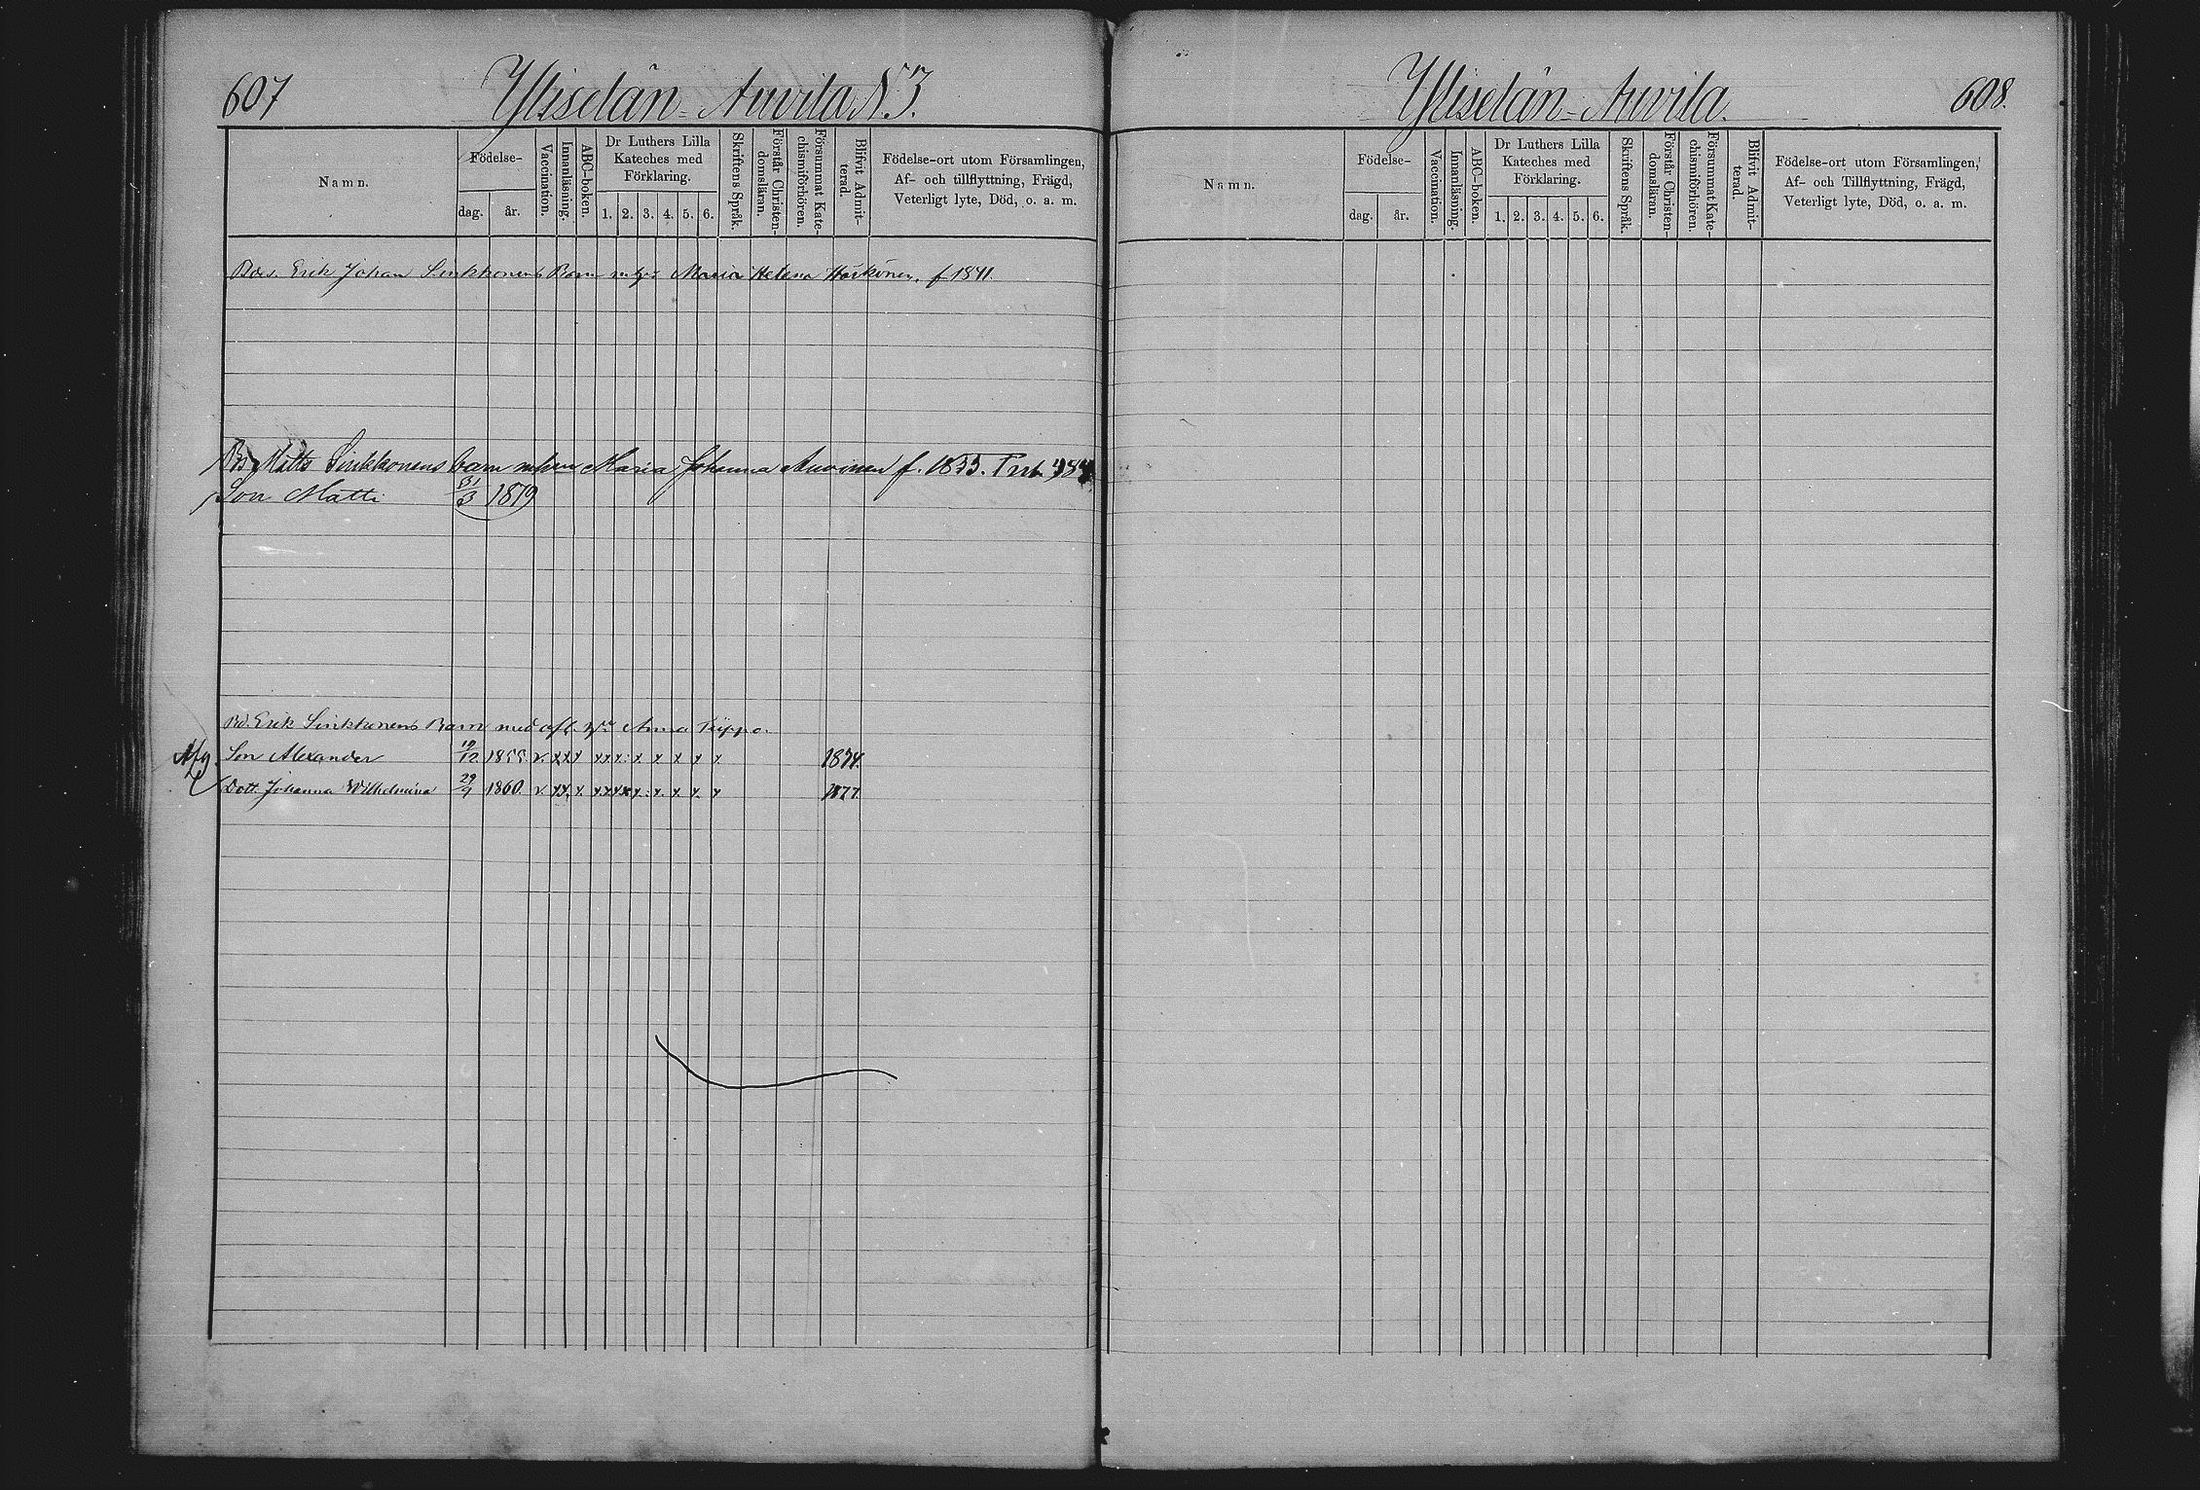 607 Yliselän Auvila N 3.
Namn. Födelse- dag. år. Vaccination. Innanläsning. ABC-boken. Dr Luthers Lilla Kateches med Förklaring. 1. 2. 3. 4. 5. 6. Skriftens Språk. Förstår Christen-domsläran. Försummat Kate-chismiförhören. Blifvit Admit-terad. Födelse-ort utom Församlingen, Af- och tillflyttning, Frägd, Veterligt lyte, Död, o. a. m.
Erik Johan Sinkkonens Barn m. h. Maria Helena Härkönen, f 1841.
Bd Matts Sinkkonens barn m hru Maria Johanna Auvinen f. 1833.
Son Matti 31/3 1879
Bd. Erik Sinkkonens Barn med afl. Anna Piippo.
Son Alexander 19/12 1855 v. x x x x x x x x x x x 1874.
Dott. Johanna Wilhelmina 29/9 1860. v x x x x x x x x x x x 1877.
Yliselän Auvila. 608.
Namn. Födelse- dag. år. Vaccination. Innanläsning. ABC-boken. Dr Luthers Lilla Kateches med Förklaring. 1. 2. 3. 4. 5. 6. Skriftens Språk. Förstår Christen-domsläran. Försummat Kate-chismiförhören. Blifvit Admit-terad. Födelse-ort utom Församlingen, Af- och Tillflyttning, Frägd, Veterligt lyte, Död, o. a. m.